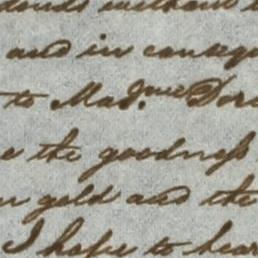 without
and in conseq
to Mad.me Dor
e the goodness
gold and the
I hope to hear